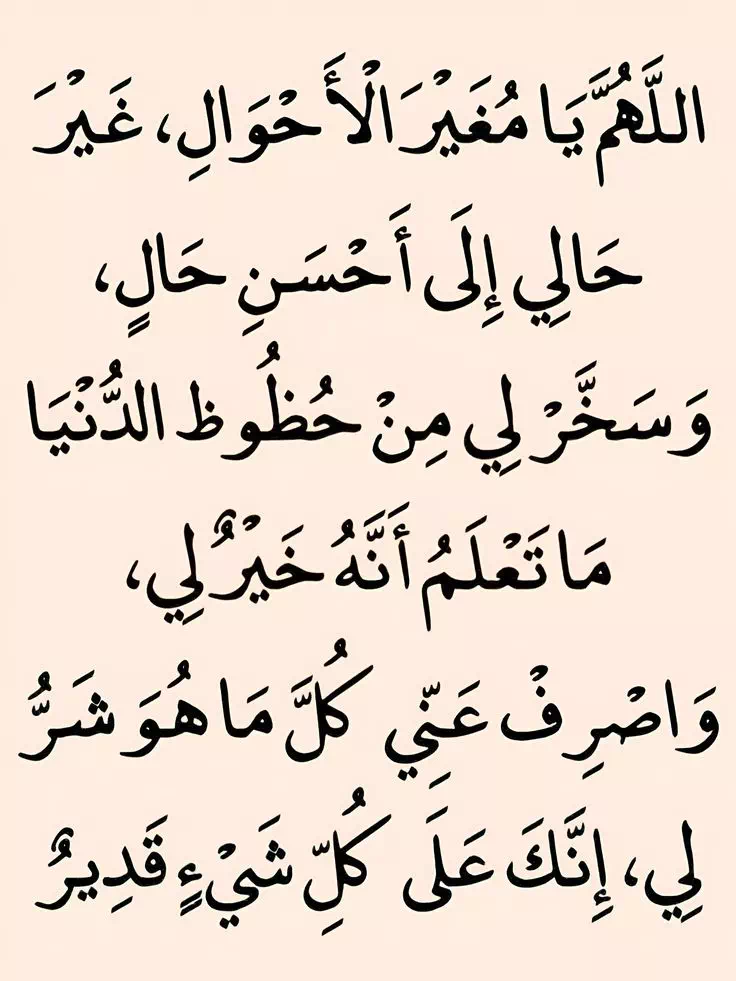 اللَّهُمَّ يَا مُغَيْرَ الْأَحْوَالِ، غَيْرَ
حَالِي إِلَى أَحْسَنِ حَالٍ،
وَسَخَّرْ لِي مِنْ حُظُوظ الدُّنْيَا
مَا تَعْلَمُ أَنَّهُ خَيْرٌ لِي،
وَاصْرِفْ عَنِّي كُلَّ مَا هُوَ شَرُّ
لِي، إِنَّكَ عَلَى كُلِّ شَيْءٍ قَدِيرٌ